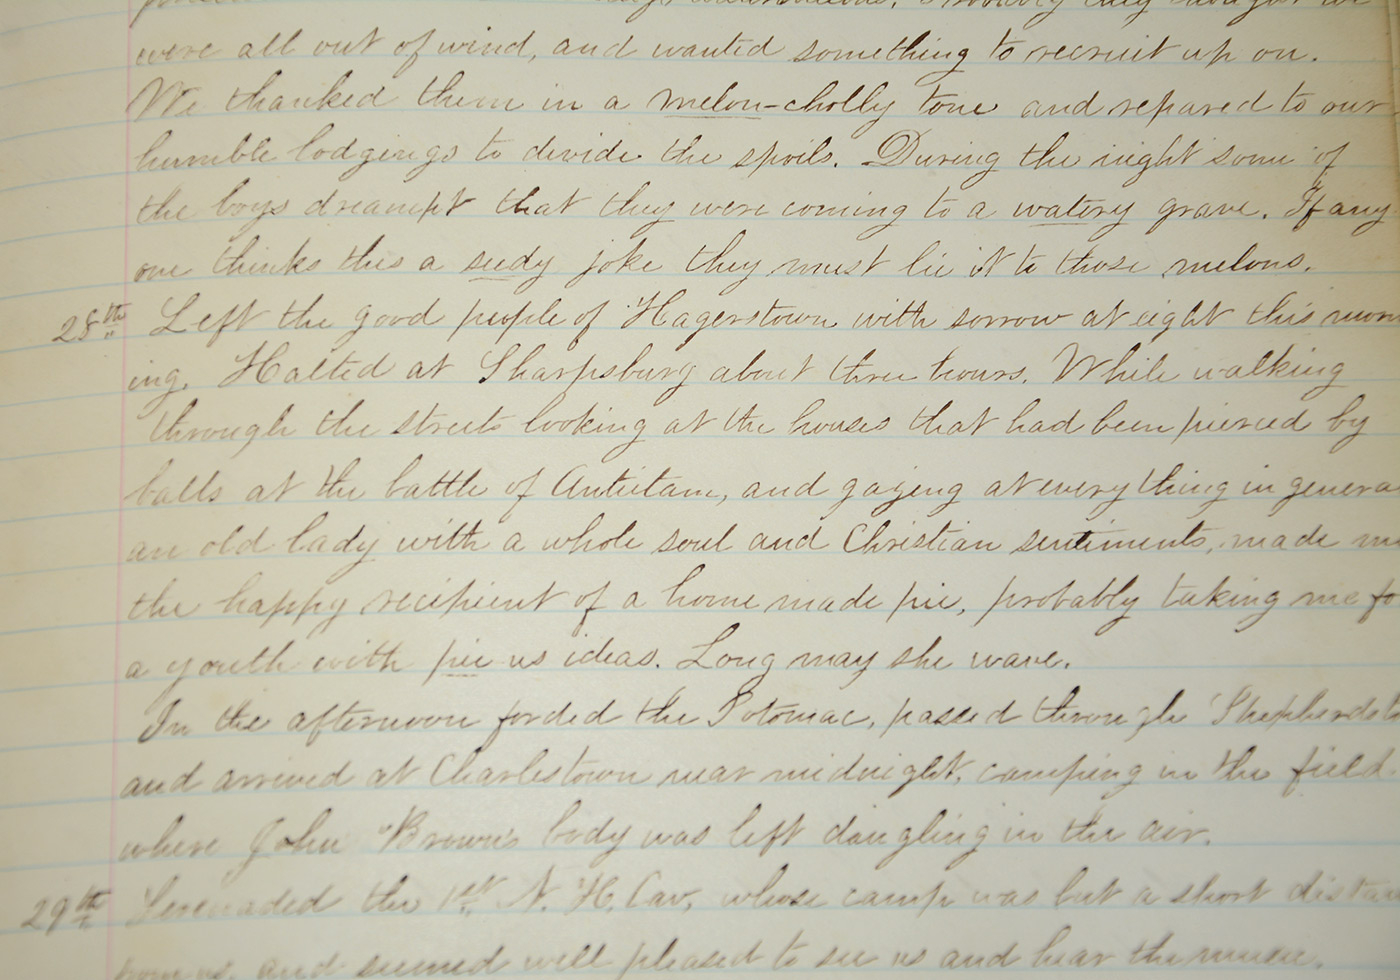 were all out of wind, and wanted something to recruit up on.
We thanked them in a melon-cholly tone and repared to our
humble lodgings to devide the spoils. During the night some of
the boys dreampt that they were coming to a watery grave. If any
one thinks this a seedy joke they must lie it to those melons.
28th Left the good people of Hagerstown with sorrow at eight this morn
ing. Halted at Sharpsburg about three hours. While walking
through the streets looking at the houses that had been pierced by
balls at the battle of Antietam, and gazing at every thing in genera
an old lady with a whole soul and Christian sentiments, made me
the happy recipient of a home made pie, probably taking me fo
a youth with pie us ideas. Long may she wave.
In the afternoon forded the Potomac, passed through Shepherdsto
and arrived at Charlestown near midnight, camping in the field
where John Brown's body was left dangling in the air.
29th Serenaded the 1st N. H. Cav. whose camp was but a short distan
from us, and seemed well pleased to see us and hear the music.